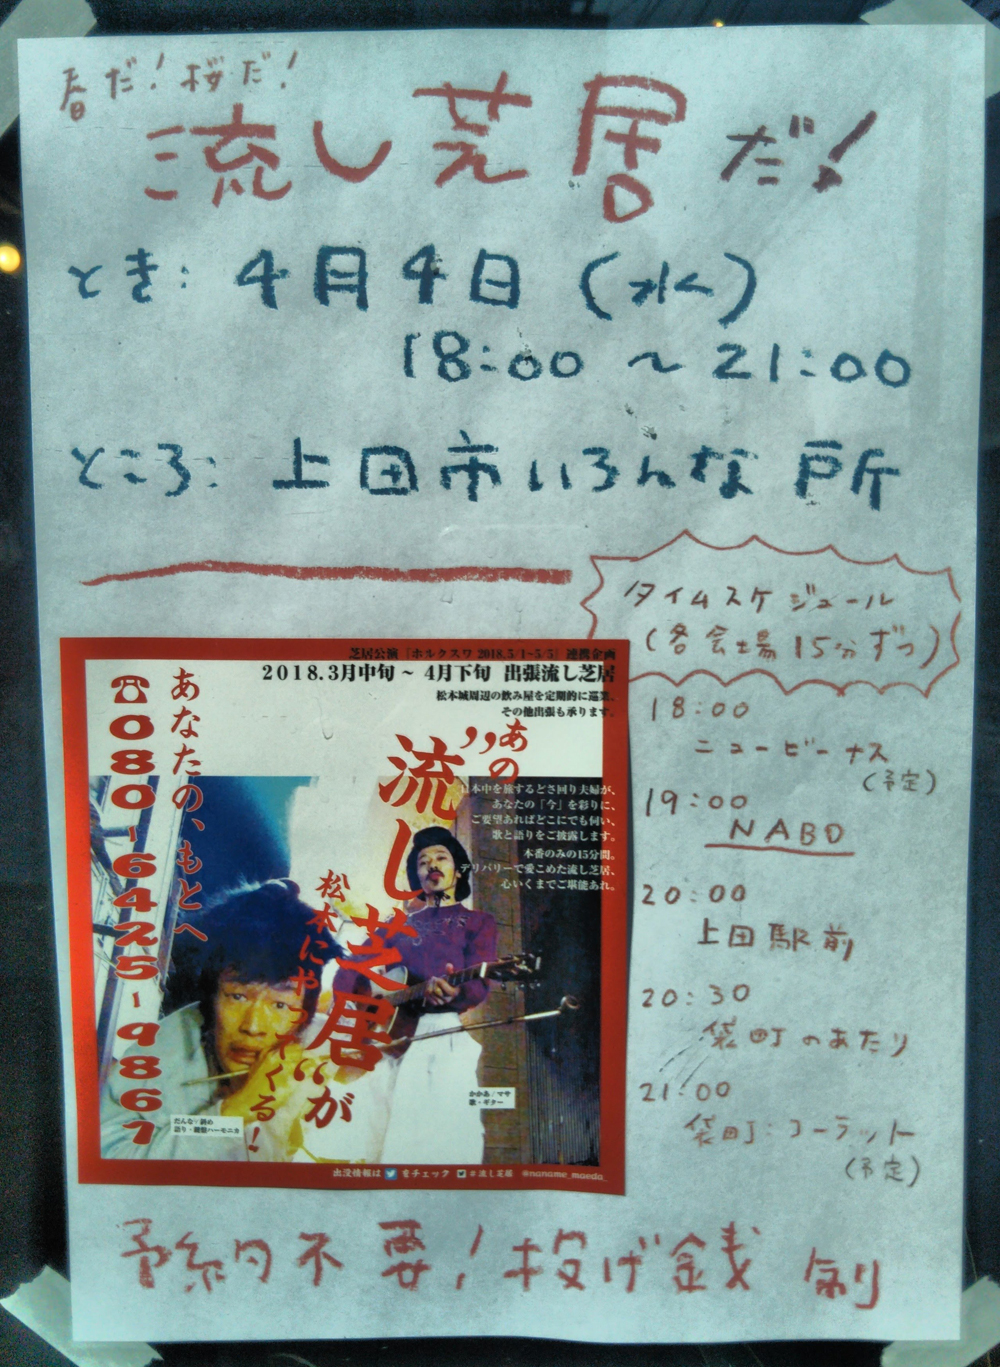 春だ!桜だ!
流し芝居だ!
とき: 4月4日(水)
18:00 ~ 21:00
ところ: 上田市いろんな所
タイムスケジュール
(各会場15分ずつ)
18:00
ニュービーナス
(予定)
19:00
NABO
20:00
上田駅前
20:30
袋町のあたり
21:00
袋町:コーラット
(予定)
芝居公演『ホルクスワ 2018.5/1~5/5』連携企画
2018.3月中旬 ~ 4月下旬 出張流し芝居
松本城周辺の飲み屋を定期的に巡業。
その他出張も承ります。
あの
"流し芝居"が
松本にやってくる!
日本中を旅するどさ回り夫婦が、
あなたの「今」を彩りに、
ご要望あればどこにでも伺い、
歌と語りをご披露します。
本番のみの15分間。
デリバリーで愛こめた流し芝居、
心いくまでご堪能あれ。
あなたの、もとへ
☎080-6425-9867
かかあ/マサ
歌・ギター
だんな/斜め
語り・鍵盤ハーモニカ
出没情報は をチェック #流し芝居 @naname_maeda_
予約不要!投げ銭制